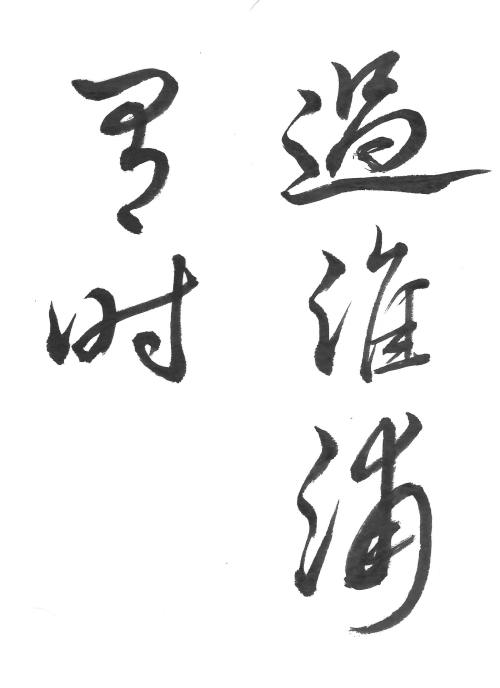 過淮浦
时